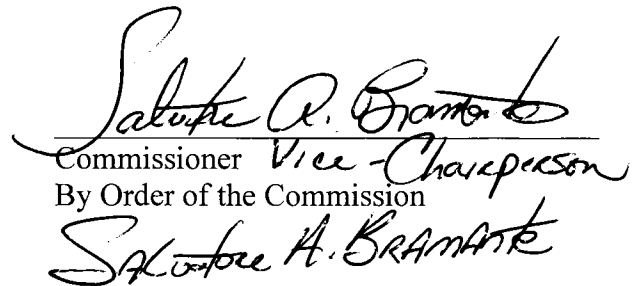 Salvatore A. Bramante
Commissioner Vice-Chairperson
By Order of the Commission
Salvatore A. Bramante